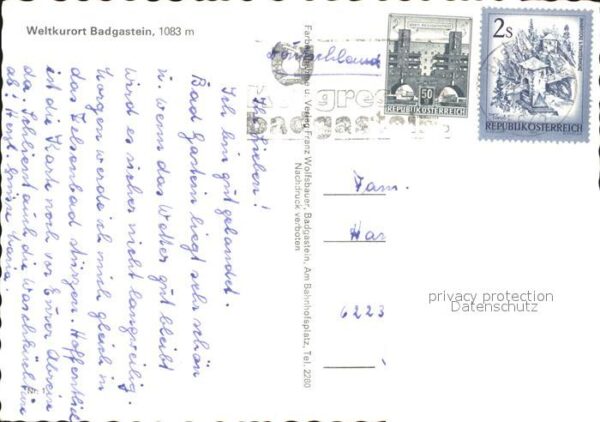 Weltkurort Badgastein, 1083 m
Ihr Lieben!
Ich bin gut gelandet.
Bad Gastein liegt sehr schön
u. wenn das Wetter gut bleibt
wird es sicher nicht langweilig.
Morgen werde ich mich gleich in
das Felsenbad stürzen. Hoffentlich
ist die Karte noch vor Eurer Abreise
da. Schliesst auch die Waschküchentüre
ab! Herzl. Grüsse
Farbaufnahme u. Verlag Franz Wolfsbauer, Badgastein, Am Bahnhofsplatz, Tel. 2280
Nachdruck verboten
Deutschland
Kongress
badgastein
50
REPUBLIK ÖSTERREICH
2S
REPUBLIK ÖSTERREICH
Fam.
Har
6223
privacy protection
Datenschutz